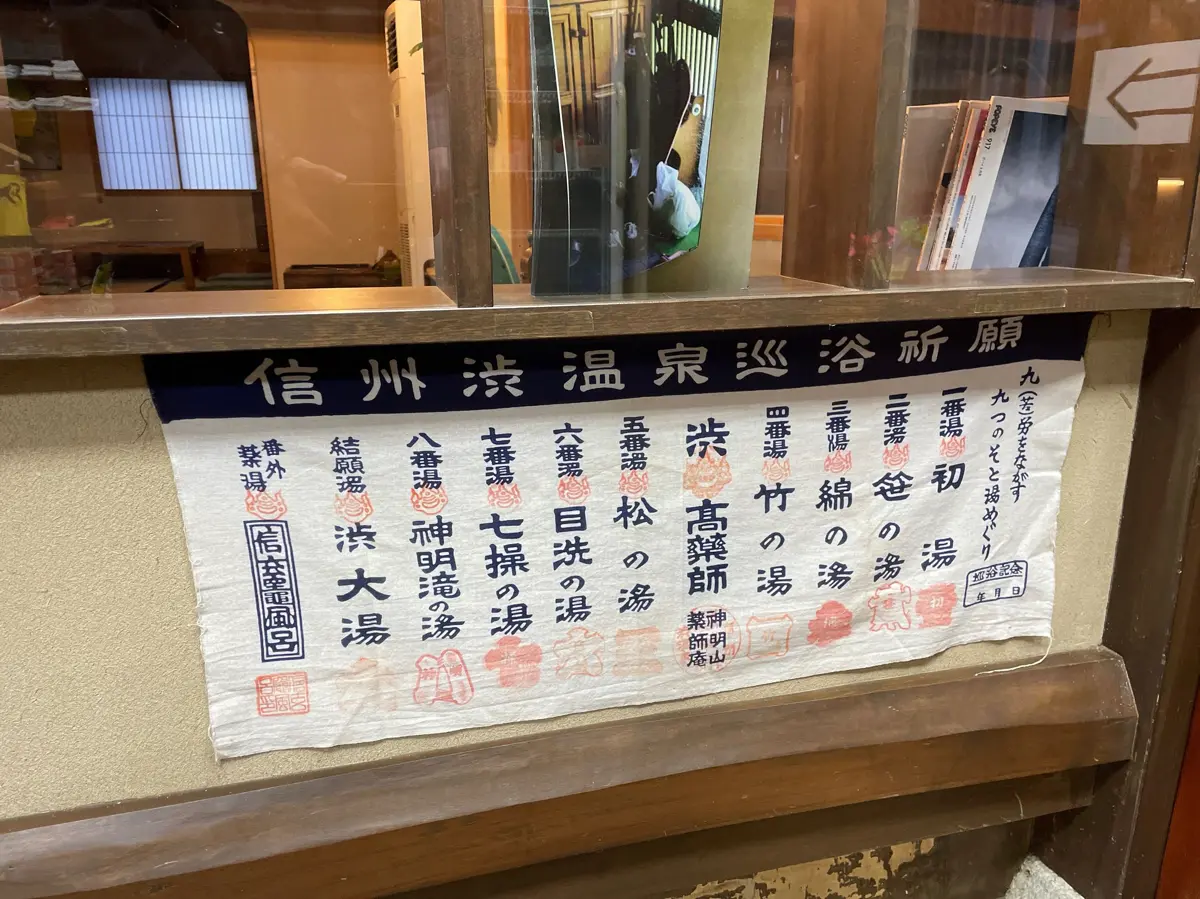 信州渋温泉巡浴祈願
九(苦)労をながす
九つのそと湯めぐり
巡浴記念
年 月 日
一番湯 初湯
二番湯 笹の湯
三番湯 綿の湯
四番湯 竹の湯
渋 高薬師
神明山
薬師庵
五番湯 松の湯
六番湯 目洗の湯
七番湯 七操の湯
八番湯 神明滝の湯
結願湯 渋大湯
番外
薬湯
信玄竈風呂
POPEYE
937